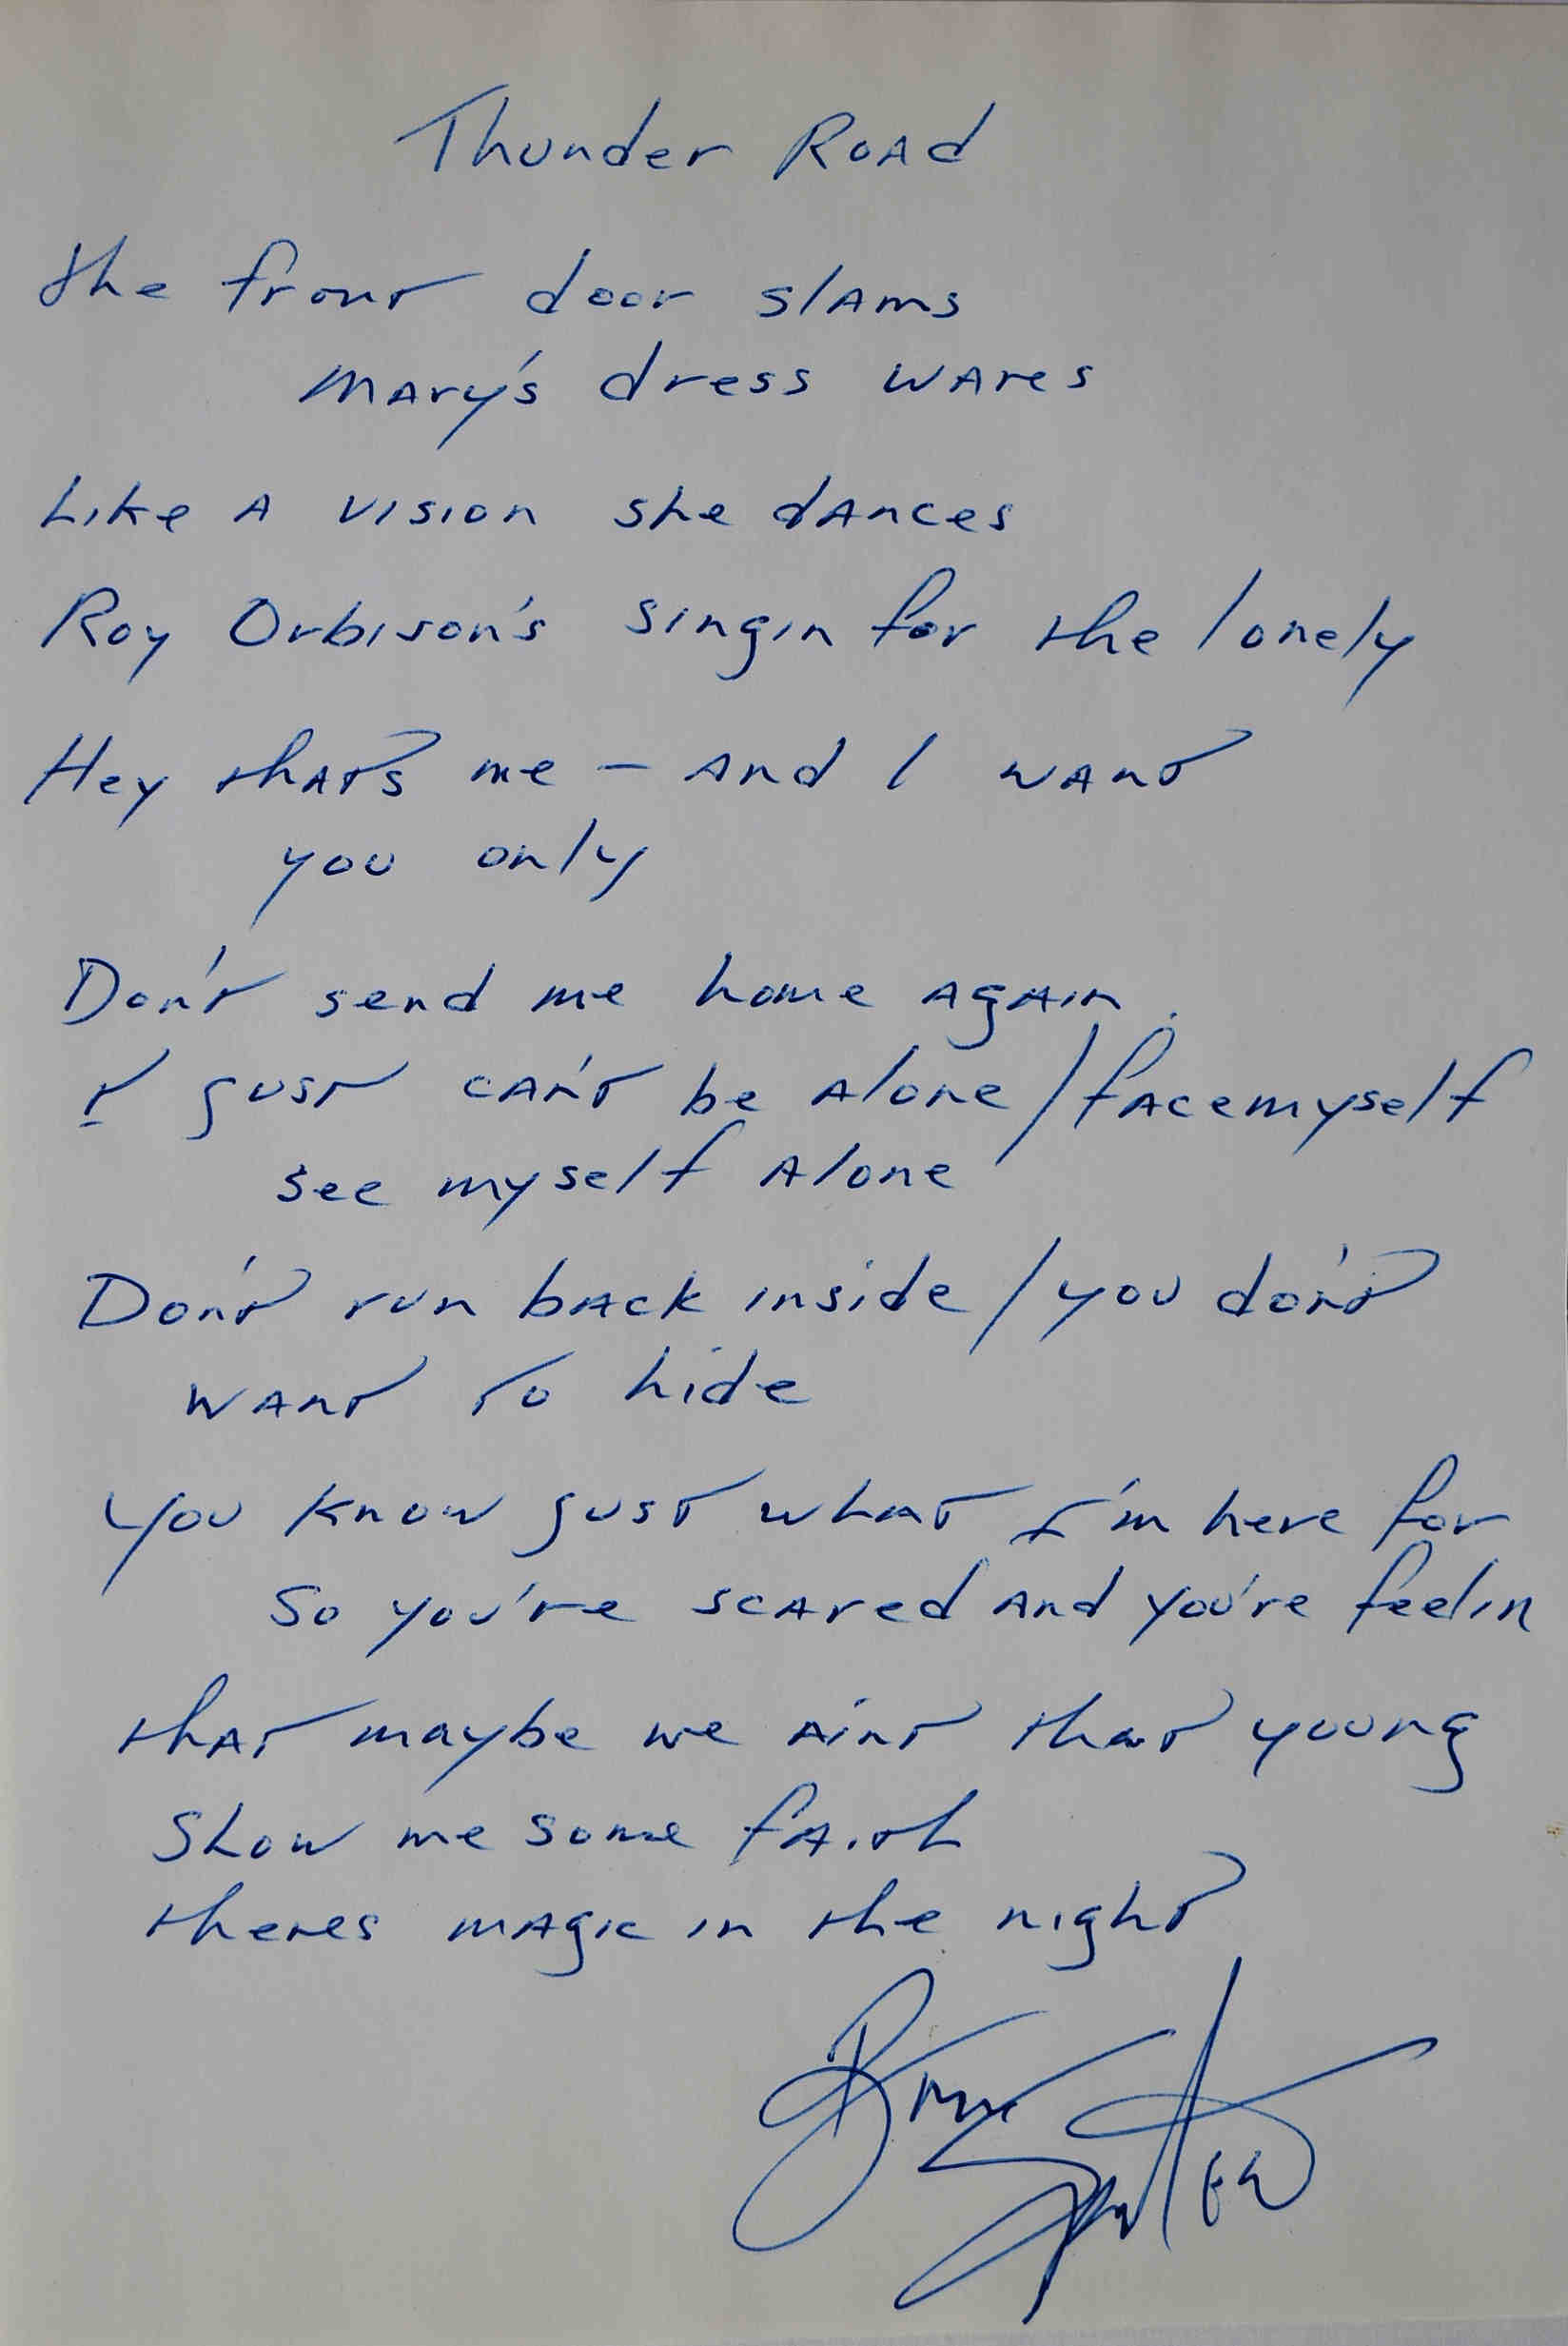 Thunder Road
the front door slams
Mary's dress waves
Like a vision she dances
Roy Orbison's singin for the lonely
Hey thats me – and I want
you only
Don't send me home again
I just can't be alone / face myself
see myself alone
Don't run back inside / you don't
want to hide
You know just what I'm here for
So you're scared and you're feelin
that maybe we aint that young
Show me some faith
theres magic in the night
Bruce Springsteen